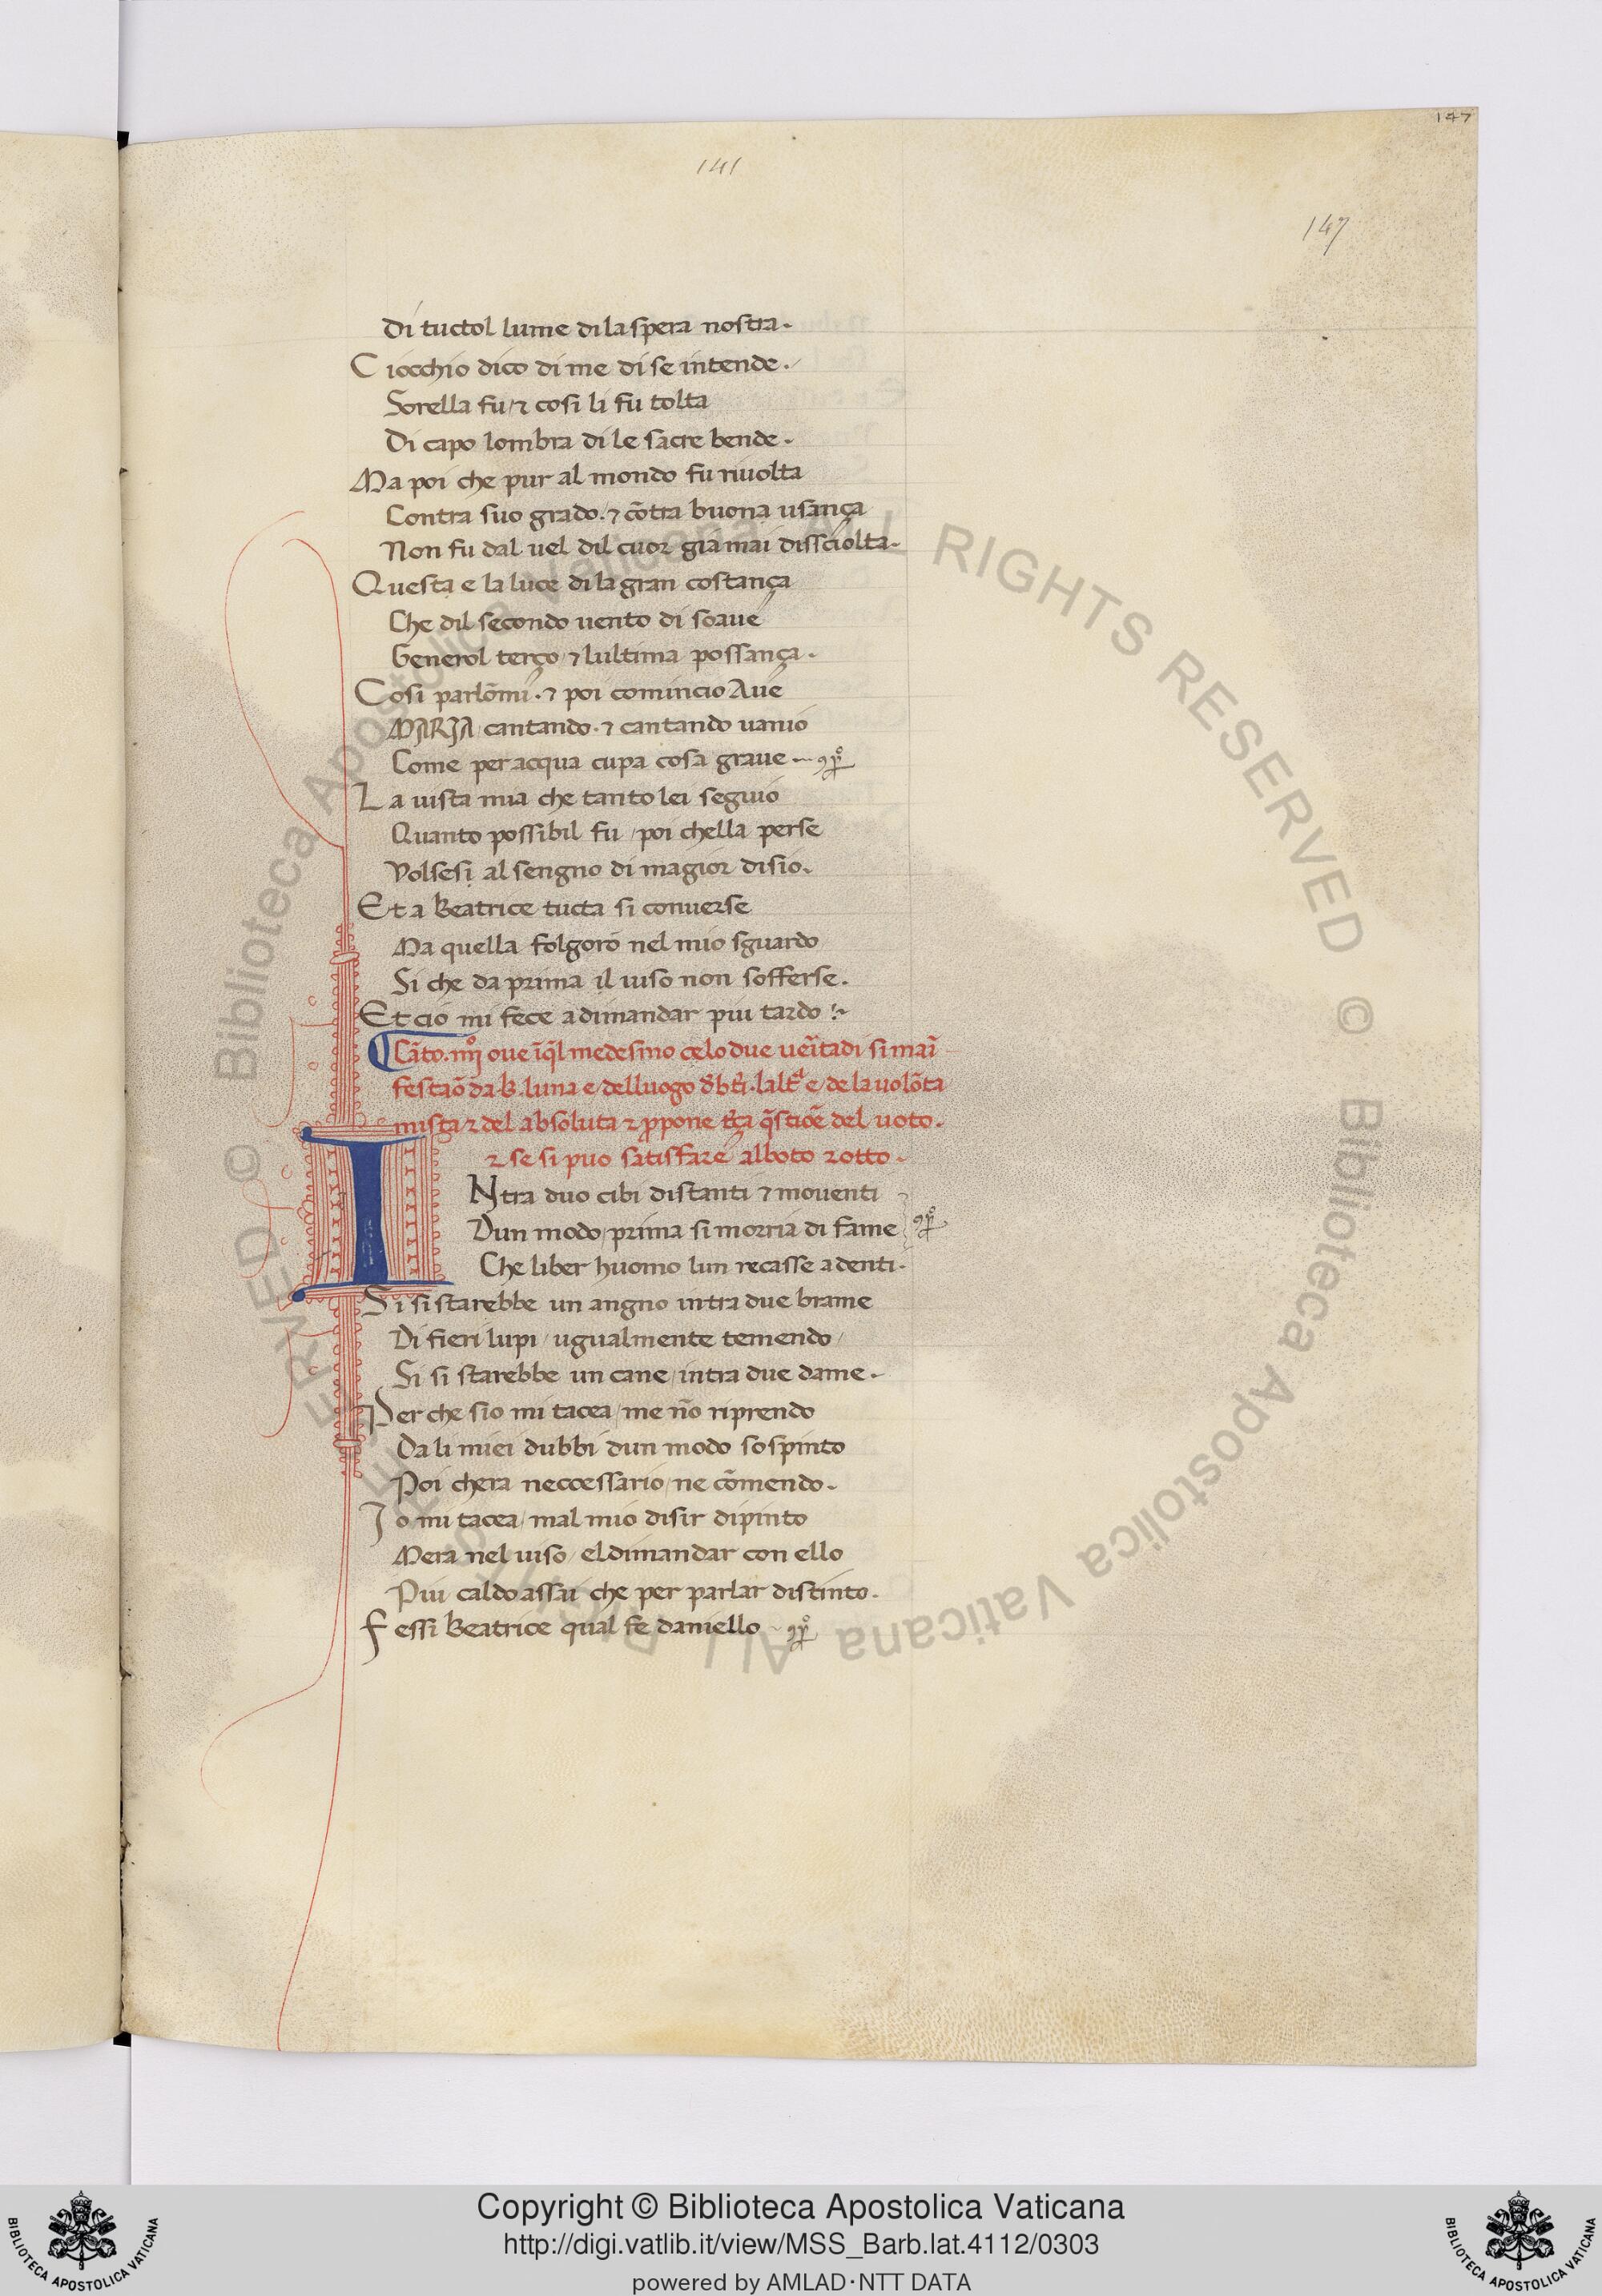 147
141
147
Di tuctol lume di la spera nostra.
Ciocchio dico di me di se intende.
Sorella fu/ ⁊ cosi li fu tolta
Di capo lombra di le sacre bende.
Ma poi che pur al mondo fu riuolta
Contra suo grado. ⁊ cõtra buona usança
Non fu dal uel dil cuor gia mai dissciolta.
Questa e la luce di la gran costança
Che dil secondo uento di soaue
Generol terço/ ⁊ lultima possança.
Cosi parlõmi. ⁊ poi comincio Aue
MARIA/ cantando. ⁊ cantando uanio
Come per acqua cupa cosa graue
La uista mia che tanto lei seguio
Quanto possibil fu/ poi chella perse
Volsesi al sengno di magior disio.
Et a Beatrice tucta si conuerse
Ma quella folgorò nel mio sguardo
Si che da prima il uiso non sofferse.
Et ciò mi fece a dimandar piu tardo
Cãto. iiijº oue ĩ q̃l medesmo celo due ueritadi si mãi
festaõ da. B. luna e/ delluogo
mista ⁊ del absoluta ⁊ ꝓpone q̃stiõe del uoto.
⁊ se si puo satisfare alboto rotto.
INtra duo cibi distanti ⁊ mouenti
Dun modo/ prima si morria di fame
Che liber huomo lun recasse a denti.
Si si starebbe un angno intra due brame
Di fieri lupi/ ugualmente temendo/
Si si starebbe un cane/ intra due dame.
Per che sio mi tacea/ me nõ riprendo
Da li miei dubbi dun modo sospinto
Poi chera neccessario/ ne cõmendo.
Io mi tacea/ mal mio disir dipinto
Mera nel uiso/ el dimandar con ello
Piu caldo assai che per parlar distinto.
Fessi Beatrice qual fe daniello
© Biblioteca Apostolica Vaticana ALL RIGHTS RESERVED © Biblioteca Apostolica Vaticana ALL RIGHTS RESERVED
Copyright © Biblioteca Apostolica Vaticana
http://digi.vatlib.it/view/MSS_Barb.lat.4112/0303
powered by AMLAD·NTT DATA
BIBLIOTECA APOSTOLICA VATICANA
BIBLIOTECA APOSTOLICA VATICANA